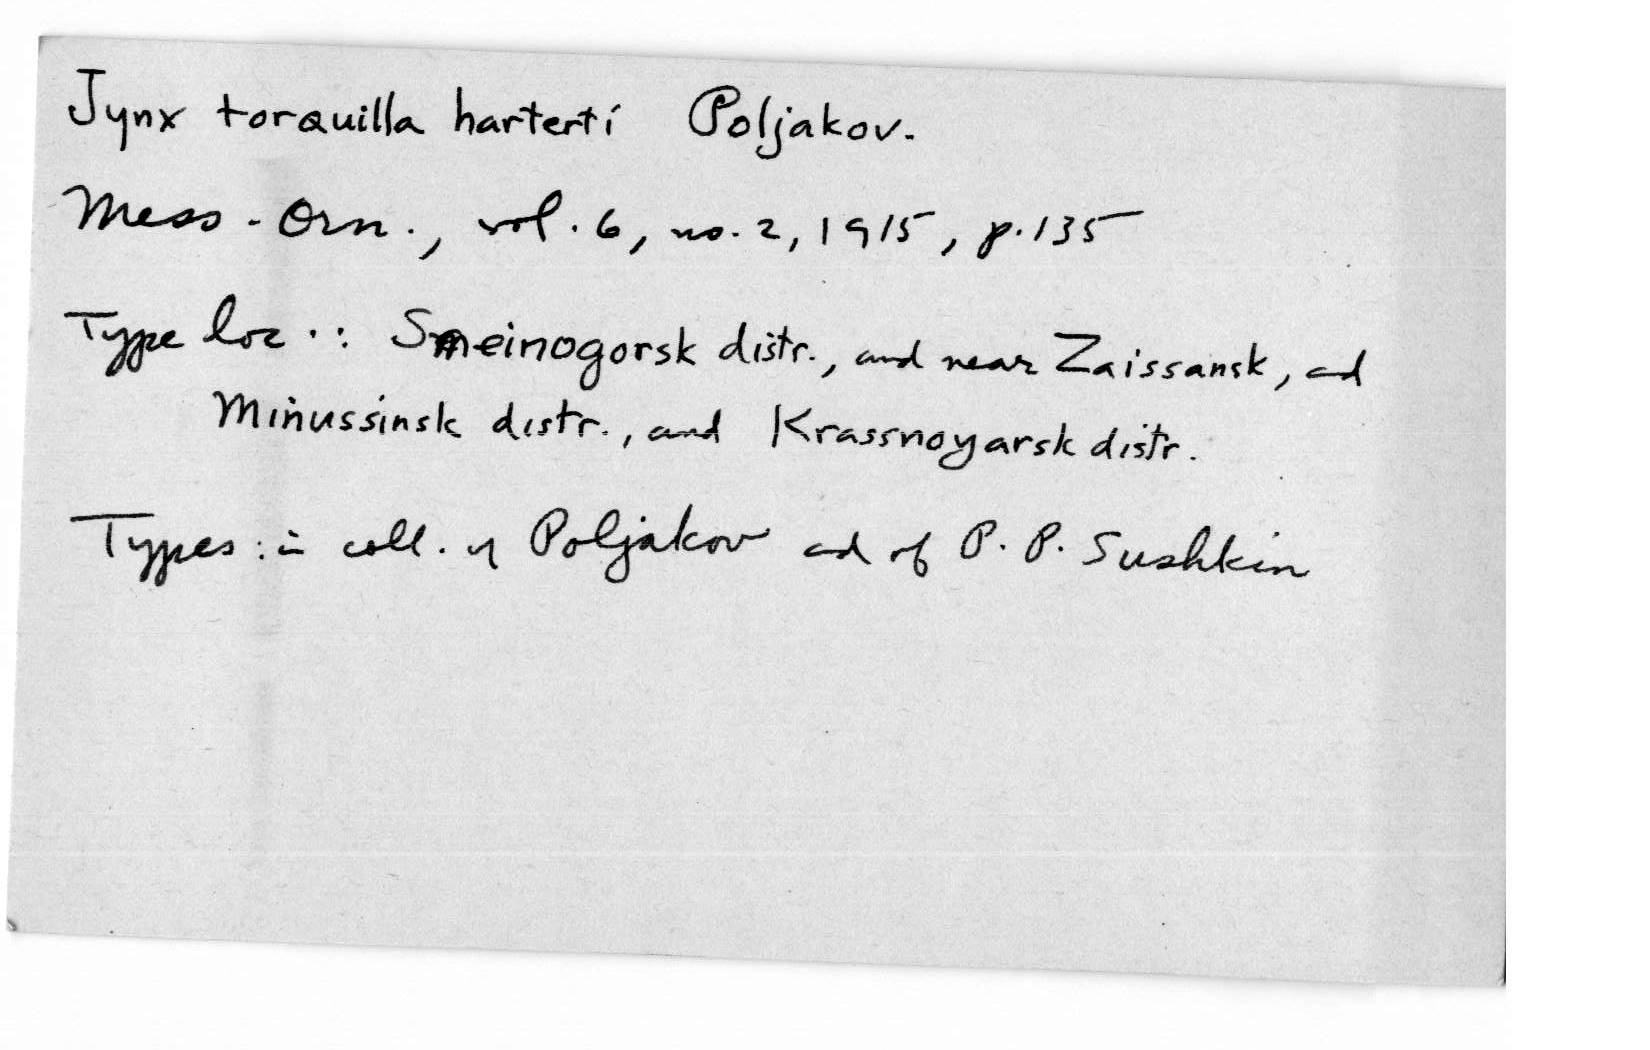 Jynx torquilla harterti Poljakov.
Mess. Orn., vol. 6, no. 2, 1915, p. 135
Type loc.: Smeinogorsk distr., and near Zaissansk, and
Minussinsk distr., and Krassnoyarsk distr.
Types: in coll. of Poljakov and of P. P. Sushkin